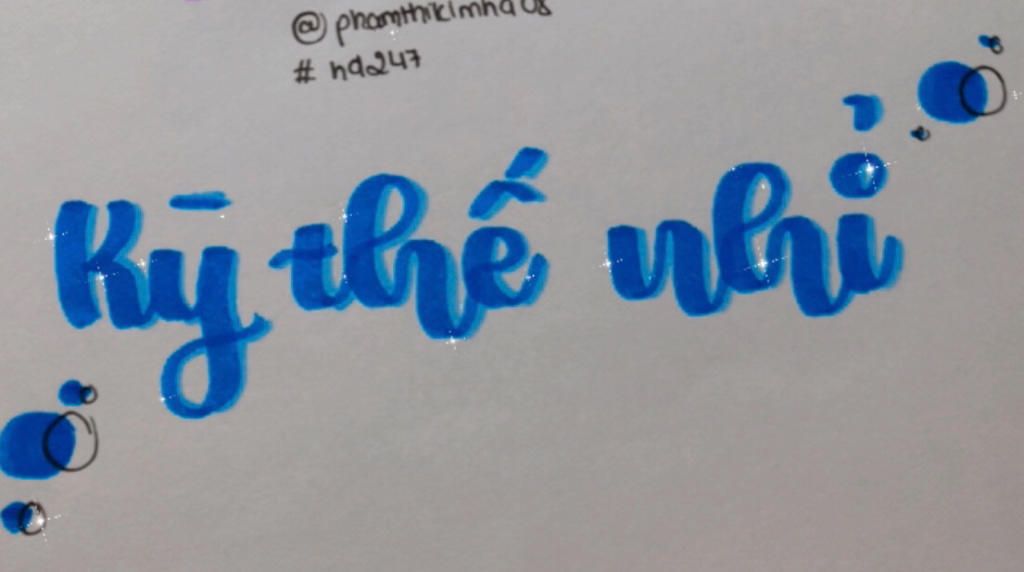 @phamthikimha08
# ha247
Kỳ thế nhỉ